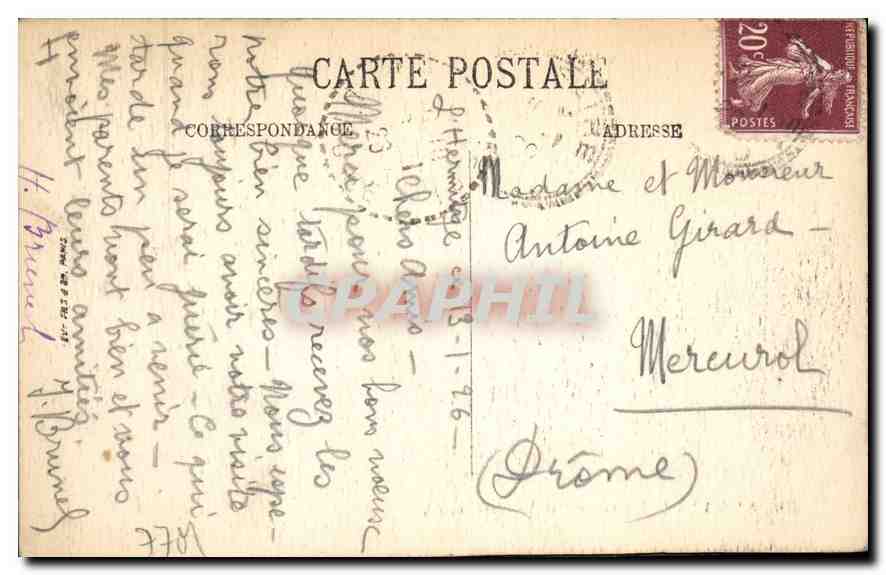 CARTE POSTALE
CORRESPONDANCE
ADRESSE
20c
POSTES
REPUBLIQUE FRANÇAISE
l'Hermitage 13-1-26-
chers amis-
Merci pour nos bons voeux
quoique tardifs recevez les
notre bien sincères- Nous espe-
rons toujours avoir votre visite
quand je serai guérie- Ce qui
tarde un peu a venir-
Mes parents vont bien et vous
envoient leurs amitiés
J. Brunel
H. Brunel
775
Madame et Monsieur
Antoine Girard-
Mercurol
(Drôme)
CPAPHIL